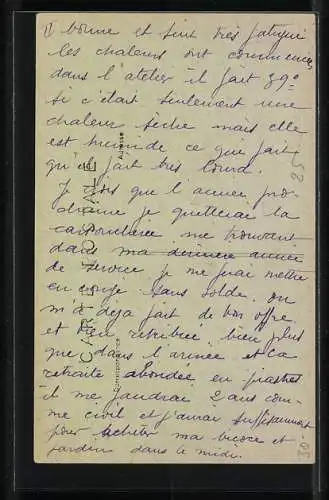 II bonne et suis très fatigué
les chaleurs ont commencées
dans l'atelier il fait 39°
si c'était seulement une
chaleur sèche mais elle
est humide ce que fait
qu'il fait très lourd.
Je crois que l'année pro-
chaine je quitterai la
cartoucherie me trouvant
dans ma dernière année
de service je me ferai mettre
en congé sans solde. on
m'a déja fait de bon offre
et bien retribuée bien plus
que dans l'armée et ca
retraite abondée en piastres
il me faudrai 2 ans com-
me civil et j'aurai suffisamment
pour acheter ma bicoce et
jardin dans le midi.
CARTE POSTALE
Correspondance
Adresse
25
30-